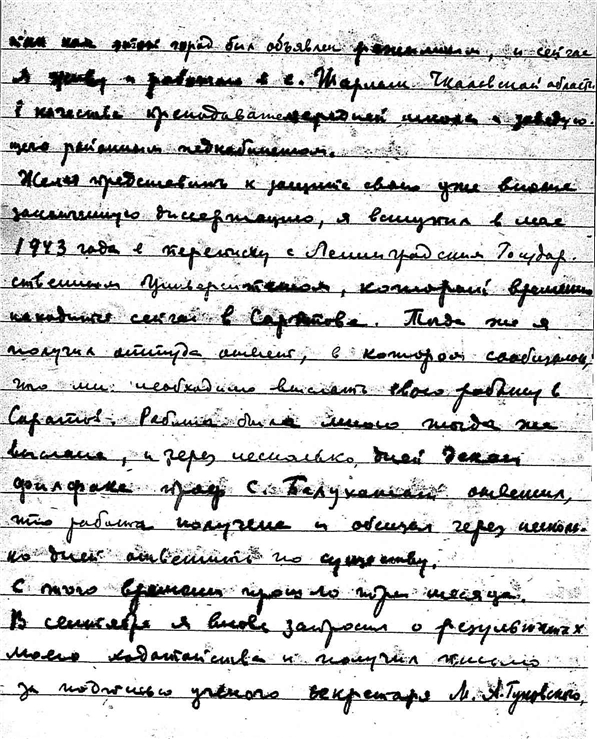 так как этот город был объявлен режимным, и сейчас
я живу и работаю в с. Шарлык Чкаловской области
в качестве преподавателя средней школы и заведую-
щего районным педкабинетом.
Желая представить к защите свою уже вполне
законченную диссертацию, я вступил в мае
1943 года в переписку с Ленинградским Государ-
ственным Университетом, который временно
находится сейчас в Саратове. Тогда же я
получил оттуда ответ, в котором сообщалось,
что мне необходимо выслать свою работу в
Саратов. Работа была мною тогда же
выслана, и через несколько дней декан
филфака проф С. Балухатый ответил,
что работа получена и обещал через несколь-
ко дней ответить по существу.
С того времени прошло три месяца.
В сентябре я вновь запросил о результатах
моего ходатайства и получил письмо
за подписью учёного секретаря М. А. Гуковского,